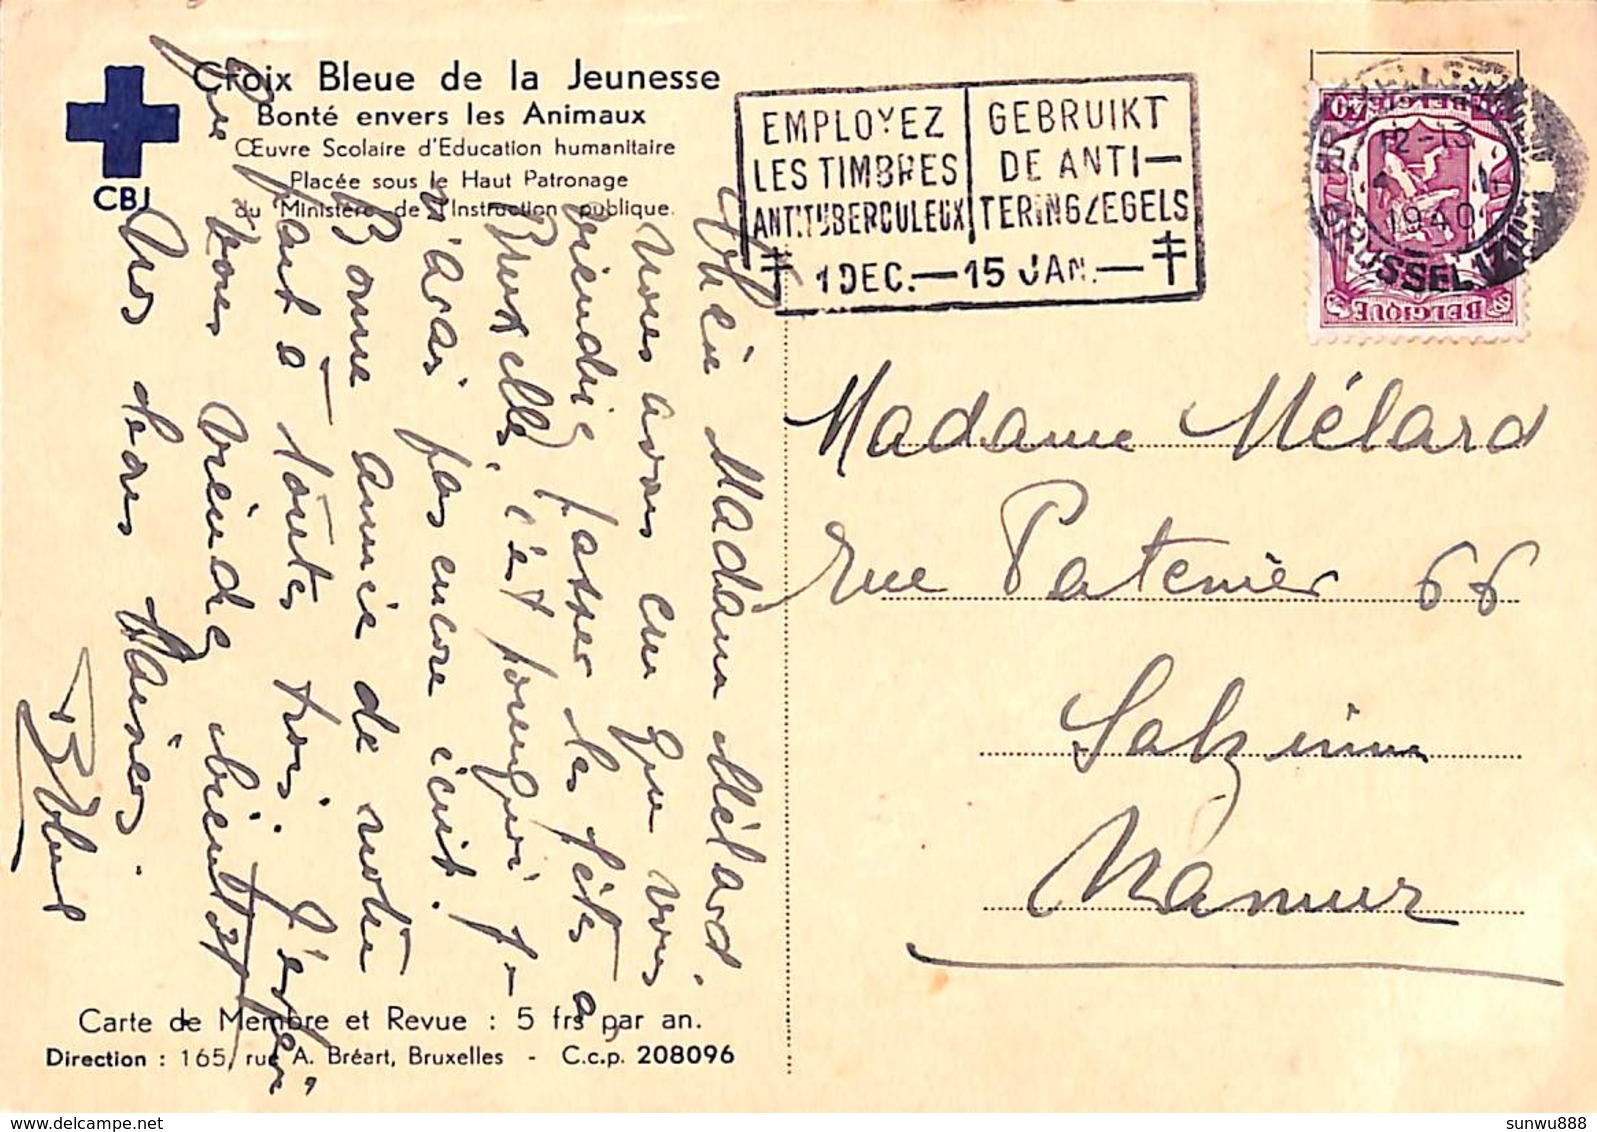 Croix Bleue de la Jeunesse
Bonté envers les Animaux
Œuvre Scolaire d'Education humanitaire
Placée sous le Haut Patronage
du Ministère de l'Instruction publique.
CBJ
EMPLOYEZ
LES TIMBRES
ANTITUBERCULEUX
GEBRUIKT
DE ANTI-
TERINGZEGELS
1 DEC. — 15 JAN. —
12-13
1940
BRUSSEL
BELGIE
40
BELGIQUE
Chère Madame Mélard,
Nous avons cru que vous
viendriez passer les fêtes à
Bruxelles, c'est pourquoi je
n'avais pas encore écrit.
Bonne année de notre
part à toutes trois. J'espère
que vous viendrez bientôt
Nos deux
Madame Mélard
rue Patenier 66
Salzinnes
Namur
Carte de Membre et Revue : 5 frs par an.
Direction : 165, rue A. Bréart, Bruxelles - C.c.p. 208096
sunwu888